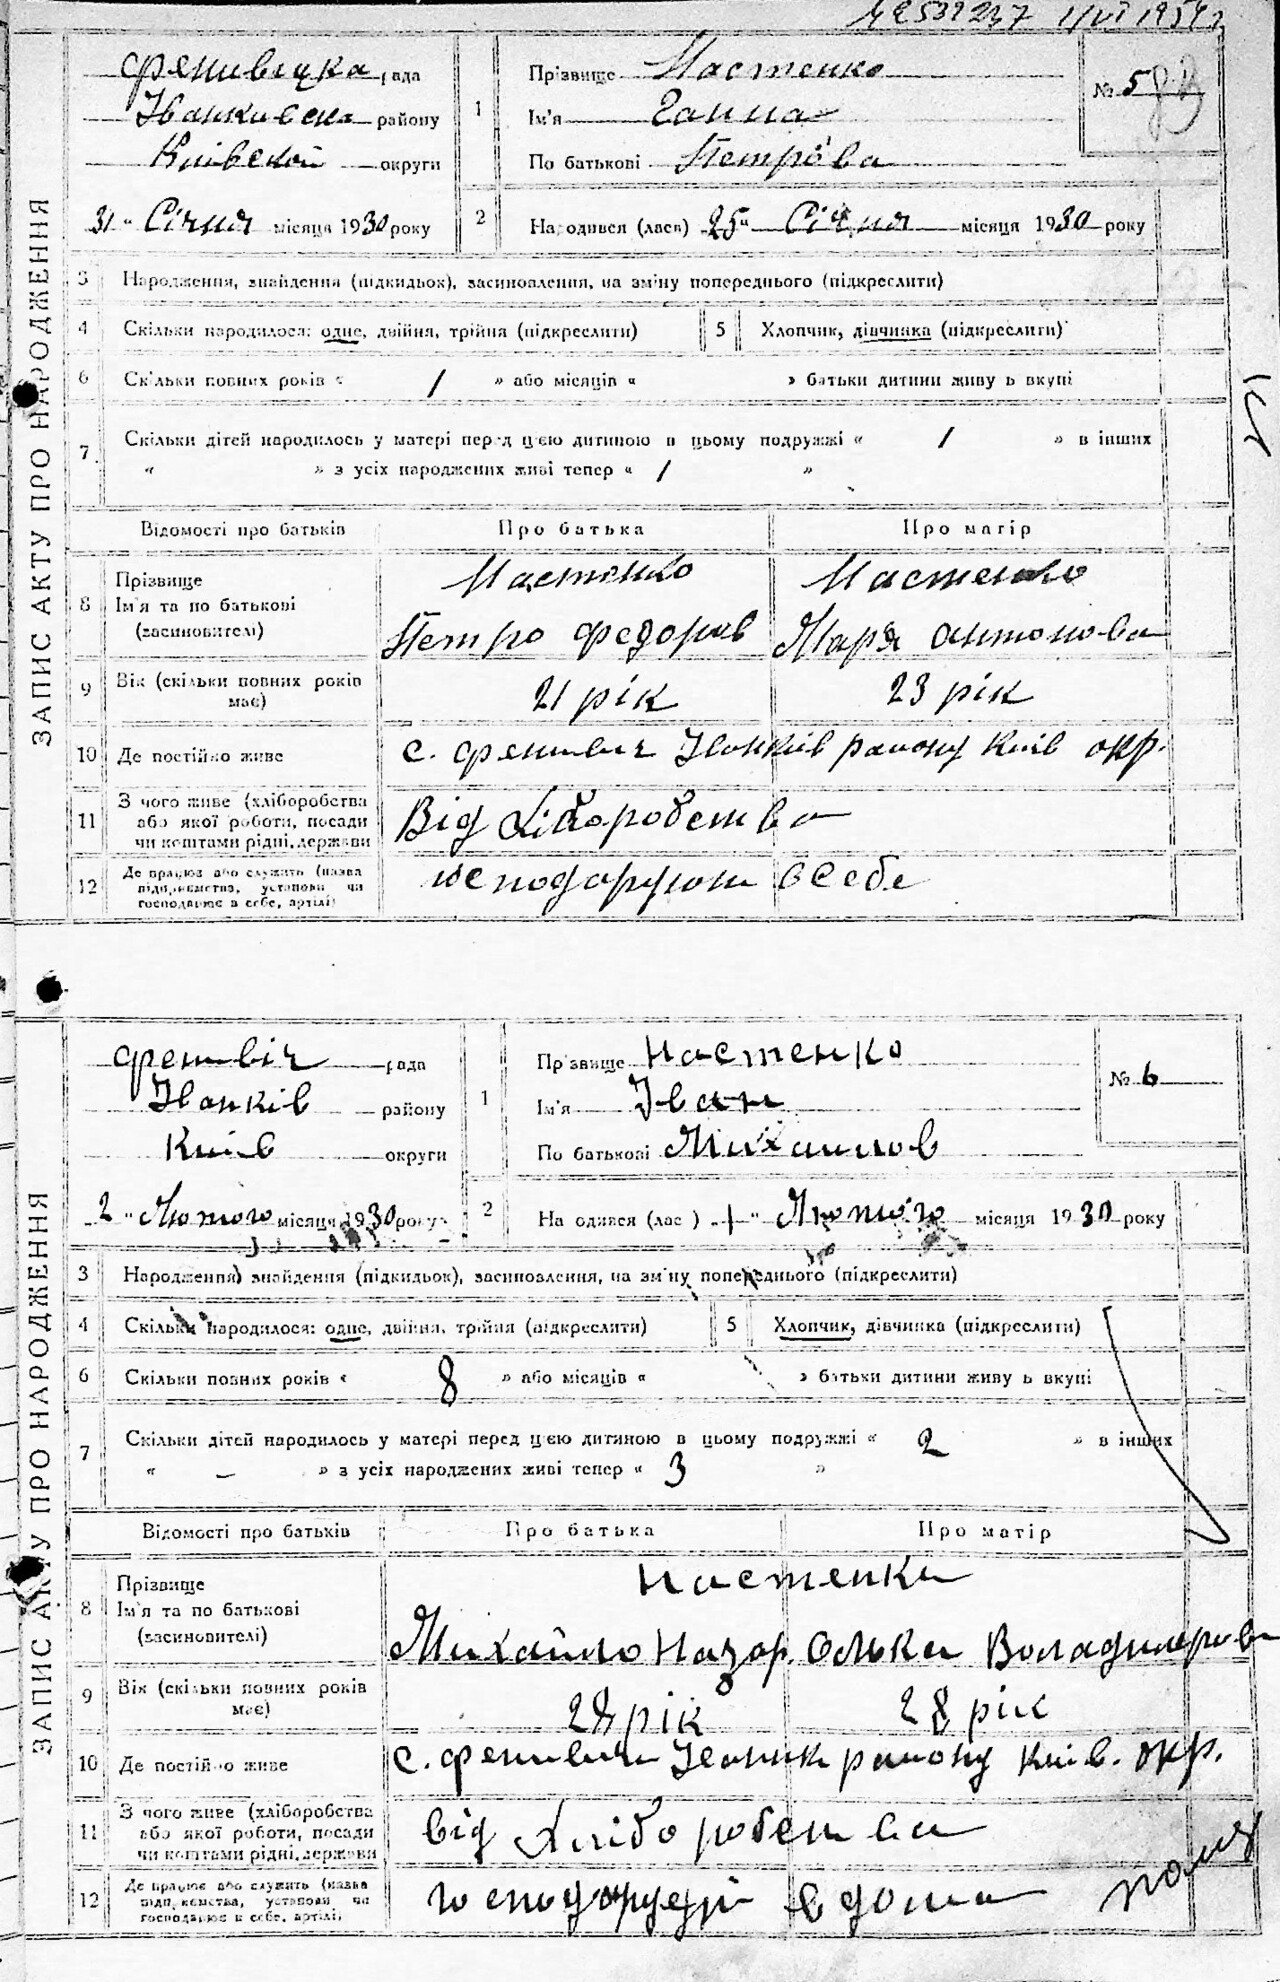 532237 1/VI 1954 г
ЗАПИС АКТУ ПРО НАРОДЖЕННЯ
рада
району
Київской округи
31 " Січня місяця 1930 року
1
Прізвище Настенко
Ім'я Ганна
По батькові Петрова
№ 5
2
Народився (лася) 25 " Січня місяця 1930 року
3 Народження, знайдення (підкидьок), засиновлення, на зміну попереднього (підкреслити)
4 Скільки народилося: одне, двійня, трійня (підкреслити) 5 Хлопчик, дівчинка (підкреслити)
6 Скільки повних років « / » або місяців « » батьки дитини живуть вкупі
7 Скільки дітей народилось у матері перед цією дитиною в цьому подружжі « / » в інших
« » з усіх народжених живі тепер « / »
Відомості про батьків Про батька Про матір
8 Прізвище
Ім'я та по батькові
(засиновителі)
Настенко Настенко
Петро Федорив Марія Антонова
9 Вік (скільки повних років має) 21 рік 23 рік
10 Де постійно живе с. Фенивич Іванків району Київ окр.
11 З чого живе (хліборобства або якої роботи, посади чи коштами рідні, держави Від хліборобства
12 Де працює або служить (назва підприємства, установи чи господарює в себе, артілі) в себе
ЗАПИС АКТУ ПРО НАРОДЖЕННЯ
Фенивіч рада
Іванків району
Київ округи
2 " Лютого місяця 1930 року
1
Прізвище Настенко
Ім'я Іван
По батькові Михаилов
№ 6
2
Народився (лас ) 1 " Лютого місяця 1930 року
3 Народження, знайдення (підкидьок), засиновлення, на зміну попереднього (підкреслити)
4 Скільки народилося: одне, двійня, трійня (підкреслити) 5 Хлопчик, дівчинка (підкреслити)
6 Скільки повних років « 8 » або місяців « » батьки дитини живуть вкупі
7 Скільки дітей народилось у матері перед цією дитиною в цьому подружжі « 2 » в інших
« – » з усіх народжених живі тепер « 3 »
Відомості про батьків Про батька Про матір
8 Прізвище
Ім'я та по батькові
(засиновителі)
Настенки
Михайло Назар. Олька Володимирова
9 Вік (скільки повних років має) 28 рік 28 рік
10 Де постійно живе с. Фенивичи Іванк району Київ. окр.
11 З чого живе (хліборобства або якої роботи, посади чи коштами рідні, держави від хліборобства
12 Де працює або служить (назва підприємства, установи чи господарює в себе, артілі) в дома